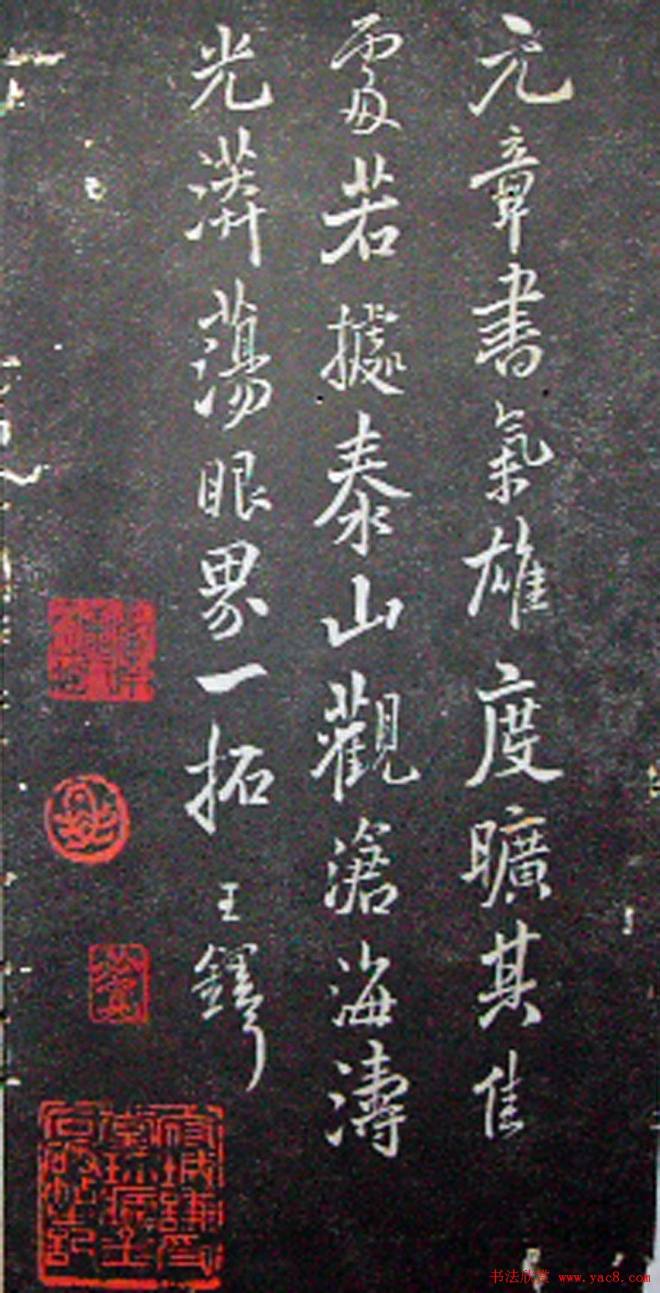 元章書氣雄度曠其佳
處若據泰山觀滄海濤
光漭蕩眼界一拓 王鐸
书法欣赏 www.yac8.com